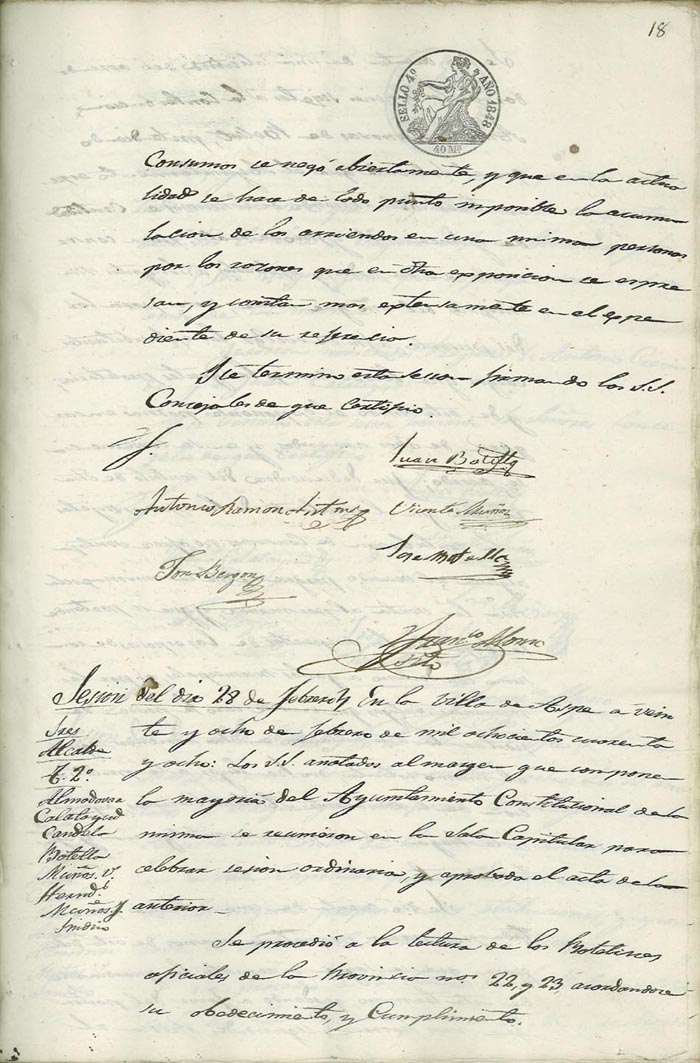 18
SELLO 4º AÑO 1848
40 Ms.
Consumos se negó abiertamente, y que en la actua
lidad se hace de todo punto inposible la acumu
lacion de los arriendos en una misma persona
por los razones que en otra exposicion se espre
san, y constan mas extensamente en el espe
diente de su referencia.
Y se termino esta sesion firmando los S.S.
Concejales de que Certifico.
Juan Botella
Antonio Ramon
Vicente Muñoz
Jose Botella
Franco. Alonso
Sesion del dia 28 de Febrero En la Villa de Aspe a vein
te y ocho de febrero de mil ochocientos cuarenta
y ocho: Los S.S. anotados al margen que componen
la mayoria del Ayuntamiento Constitucional de la
misma se reunieron en la Sala Capitular para
celebrar sesion ordinaria, y aprobada el acta de la
anterior
Sres
Alcalde
T. 2º
Almodovar
Calatayud
Candela
Botella
Muños. V.
Hernd.
Muños J.
Sindico
Se procedió a la lectura de los Boletines
oficiales de la Provincia nos. 22, y 23, acordandose
su obedecimiento, y Cumplimento.